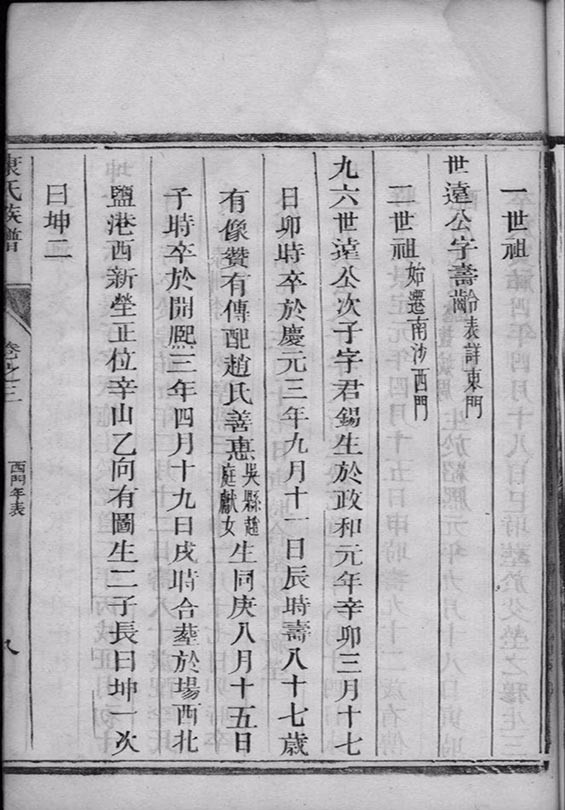 一世祖
世遠公字壽齡表詳東門
二世祖始遷南沙西門
九六世遠公次子字君錫生於政和元年辛卯三月十七
日卯時卒於慶元三年九月十一日辰時壽八十七歲
有像贊有傳配趙氏善惠吳縣趙庭獻女生同庚八月十五日
子時卒於開熙三年四月十九日戌時合塟於塲西北
鹽港西新塋正位辛山乙向有圖生二子長曰坤一次
曰坤二
氏族譜
卷之三
西門年表